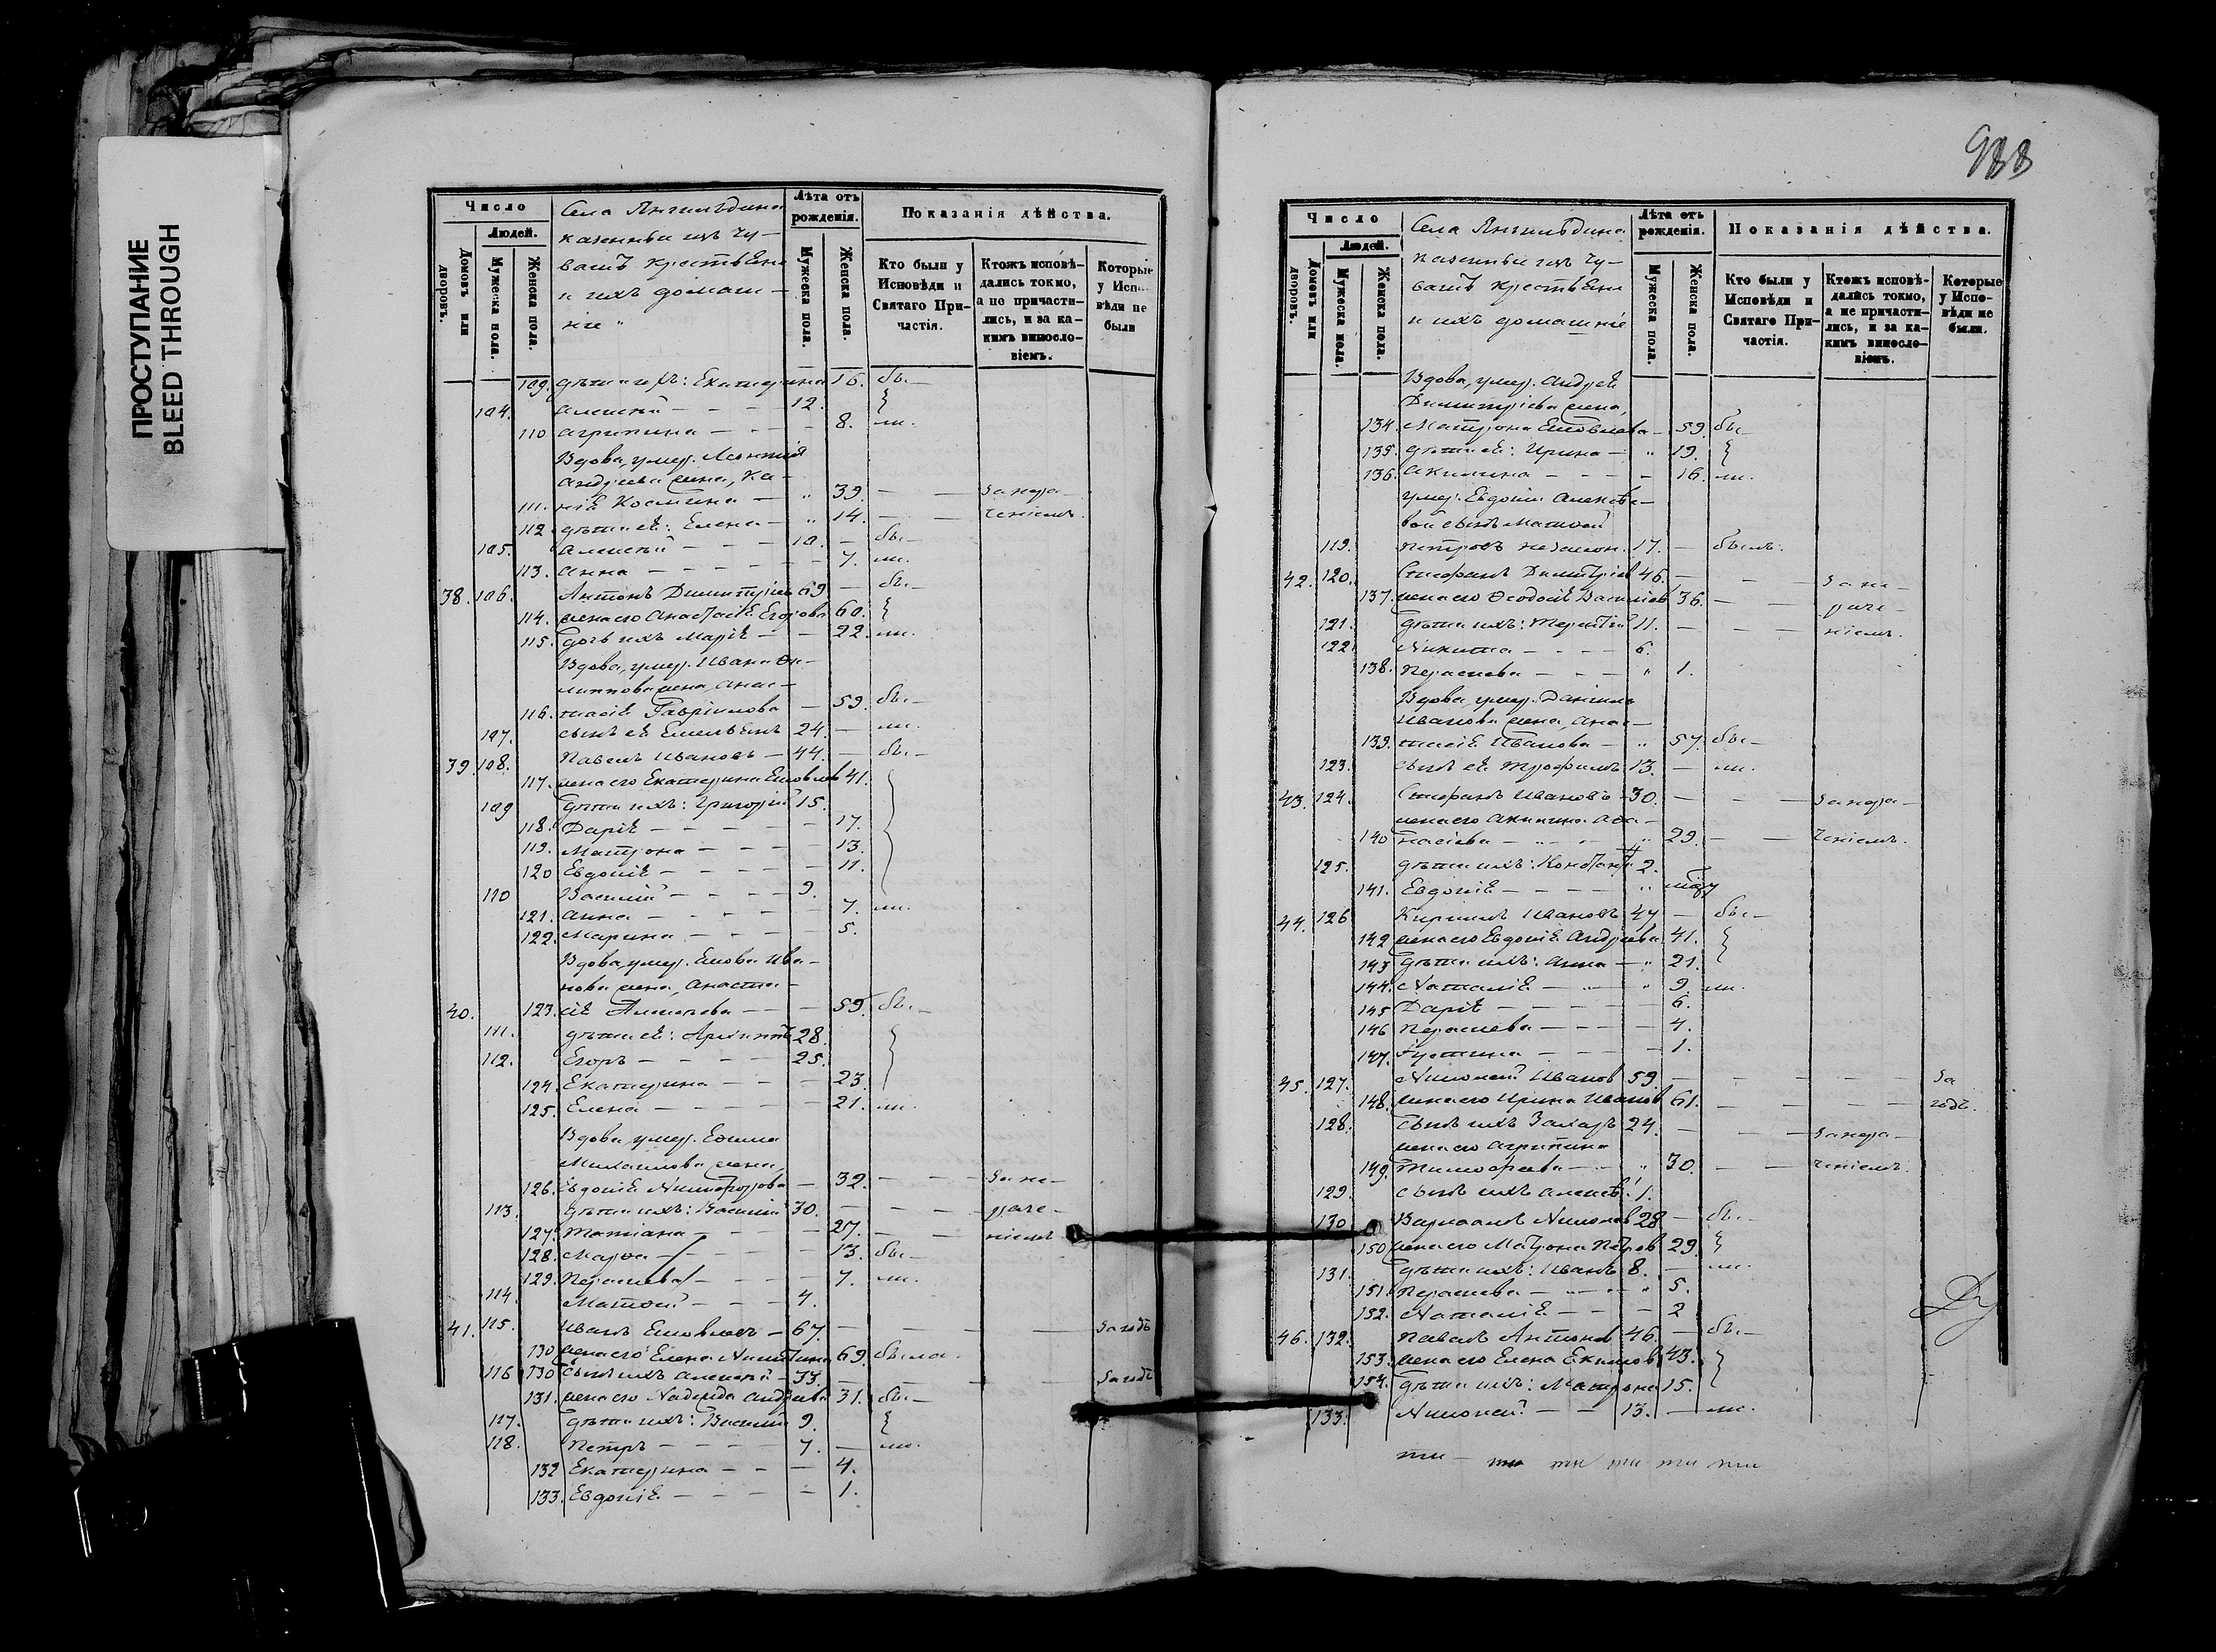 ПРОСТУПАНИЕ
BLEED THROUGH
Число
Людей.
Домовъ или дворовъ.
Мужеска пола.
Женска пола.
Села Янгильдина
казенные изъ Чу-
вашъ крестьяне
и ихъ домаш-
ніе
Лѣта отъ рожденія.
Мужеска пола.
Женска пола.
Показанія дѣйства.
Кто были у Исповѣди и Святаго При-частія.
Ктожъ исповѣ-дались токмо, а не причасти-лись, и за ка-кимъ винословіемъ.
Которые у Исповѣди не были
109. дѣти его: Екатерина 16. бы-
104. Алексѣй - - - 12.
110 Агрипина - - - 8. ли.
Вдова, умер. Леонтія
Андреева жена,
111. Космина - 39. - - за нера-
112 дѣти ея: Елена - 14. - - ченіемъ.
105. Алексѣй - - - 10. - бы-
113. Анна - - - - 7. ли.
38. 106. Антонъ Димитріевъ 69 - бы-
114. жена его Анастасія Егорова 60.
115. дочь ихъ Марія - - 22. ли.
Вдова, умер. Ивана Фи-
липпова жена, Анас-
116. тасія Гавріилова - 59. бы-
107. сынъ ея Емельянъ 24. - ли.
39. 108. Павелъ Ивановъ - 44. - бы-
117. жена его Екатерина 41.
109 дѣти ихъ: Григорій 15.
118. Дарія - - - - 17.
119. Матрона - - - - 13.
120 Евдокія - - - - 11.
110 Василій - - - - 9.
121. Анна - - - - 7. ли.
122. Марина - - - - 5.
Вдова, умер. Ива-
нова жена, Анаста-
40. 123. сія Алексѣева - - 59. бы-
111. дѣти ея: Архиппъ 28.
112. Егоръ - - - - 25.
124. Екатерина - - - 23.
125. Елена - - - - 21. ли.
Вдова, умер. Ефима
Михаилова жена,
126. Евдокія Никифорова - 32. - - за не-
113. дѣти ихъ: Василій 30. - - - раче-
127. Татіана - - - 27. - - ніемъ
128. Марфа - - - - 13. бы-
129. Параскева - - - 7. ли.
114. Матвей - - - 4.
41. 115. Иванъ - 67. - - - за годъ
130 жена его Елена Никитина 69. была.
116 130 сынъ ихъ Алексѣй - 33. - - - за годъ
131. жена его Надежда Андреева 31. бы-
117. дѣти ихъ: Василій 9.
118. Петръ - - - - 7. - ли.
132 Екатерина - - - 4.
133. Евдокія - - - - 1.
988
Число
Людей.
Домовъ или дворовъ.
Мужеска пола.
Женска пола.
Села Янгильдина
казенные изъ Чу-
вашъ крестьяне
и ихъ домашніе
Лѣта отъ рожденія.
Мужеска пола.
Женска пола.
Показанія дѣйства.
Кто были у Исповѣди и Святаго При-частія.
Ктожъ исповѣ-дались токмо, а не причасти-лись, и за ка-кимъ винословіемъ.
Которые у Испо-вѣди не были.
Вдова, умер. Андрея
Димитріева жена,
134. Матрона - 59. бы-
135. дѣти ея: Ирина - 19.
136. Акилина - - - 16. ли.
умер. Евдокіи Алексѣе-
вой сынъ Матвей
119. Петровъ незакон. 17. - былъ.
42. 120. Стефанъ Димитріев 46. - - - за не-
137. жена его Ѳеодосія Василіев 36. - - раче-
121. дѣти ихъ: Терентій 11. - - - ніемъ.
122. Никита - - - - 6.
138. Параскева - - - 1.
Вдова, умер. Даніила
Иванова жена, Анас-
139. тасія Иванова - 57. бы-
123. сынъ ея Трофимъ 13. - ли.
43. 124. Стефанъ Ивановъ 30. - - - за нера-
жена его Акилина Аѳа-
140 насіева - - - 29. - - ченіемъ.
125. дѣти ихъ: Констант. 2.
141. Евдокія - - - -
44. 126 Кириллъ Ивановъ 47 - бы-
142 жена его Евдокія Андреева 41.
143 дѣти ихъ: Анна - 21.
144. Наталія - - 9. ли.
145 Дарія - - - - 6.
146 Параскева - - - - 4.
147. Іустина - - - - 1.
45. 127. Николай Иванов 59. - - - - за
148. жена его Ирина Иванов 61. - - - годъ.
128. сынъ ихъ Захаръ 24. - - - за нера-
жена его Агрипина
149. Тимофеева - - 30. - - ченіемъ.
129. сынъ ихъ Алексѣй 1.
130 Варлаамъ Николаев 28 - бы-
150 жена его Матрона Петров 29.
131. дѣти ихъ: Иванъ 8. - ли.
151. Параскева - - - 5.
152. Наталія - - - 2
46. 132. Павелъ Антонов 46. - бы-
153. жена его Елена 43.
154. дѣти ихъ: Матрона 15.
133. Николай - - 13. - ли.
ти - ти ти ти ти ти